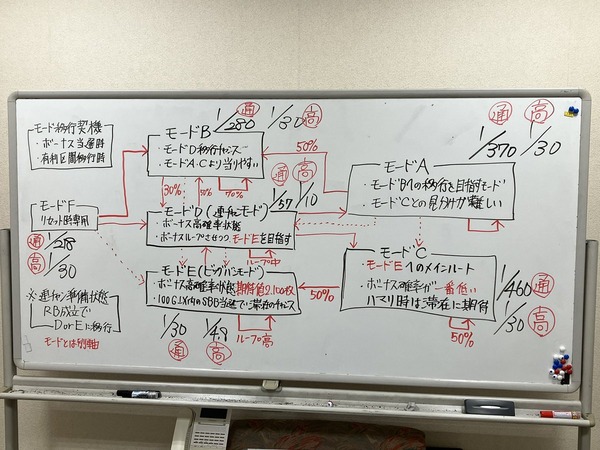 モード移行契機
・ボーナス当選時
・有利区間移行時
モードB
・モードD移行チャンス
・モードA.Cより当りやすい
1/280
通
1/30
高
50%
30%
5%
70%
モードA
・モードBへの移行を目指すモード
・モードCとの見分けが難しい
1/370
通
1/30
高
モードF
リセット時専用
通
1/218
高
1/30
モードD(連チャンモード)
・ボーナス高確率状態
・ボーナスループさせつつ、モードEを目指す
通
高
1/10
ループ中
モードC
・モードEへのメインルート
・ボーナス確率が一番低い
ハマリ時は滞在に期待
1/460
通
1/30
高
50%
50%
モードE(ビッグバンモード)
・ボーナス高確率状態 期待値2,100枚
・100G以内のSBB当選で滞在のチャンス
1/30
通
1/4.8
高
ループ高
※連チャン準備状態
RB成立で
DorEに移行
モードとは別軸